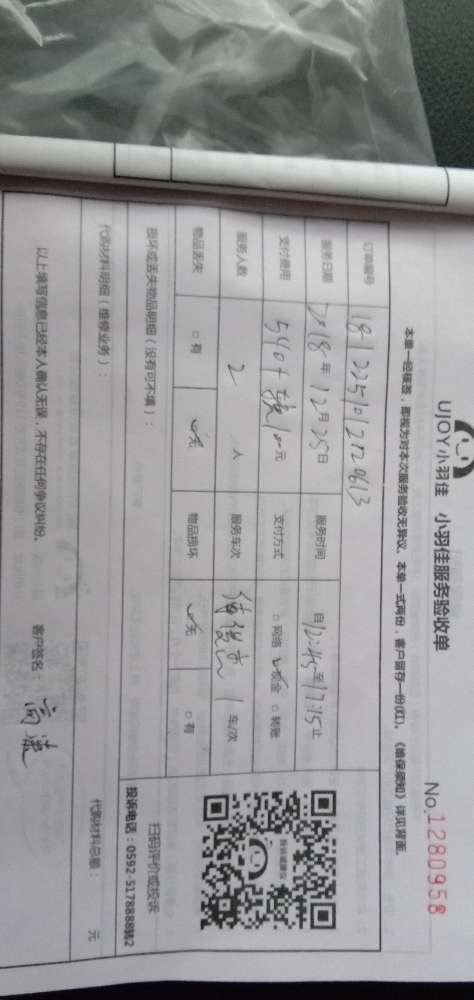 UJOY小羽佳 小羽佳服务验收单
No.1280958
本单一经核签，即视为对本次服务验收无异议。本单一式两份，客户留存一份(红)。《维保须知》详见背面。
订单编号 1812251012129613
服务日期 2018年12月25日 服务时间 自12:45至17:15止
支付费用 540+ 100元 支付方式 □网络 ☑现金 □转账
服务人数 2 人 服务车次 1 车/次
物品丢失 □有 ☑无 物品损坏 ☑无 □有
扫码评价或投诉
投诉电话：0592-5178888转2
损坏或丢失物品明细（没有可不填）：
代购材料明细（维修业务）： 代购材料总额： 元
以上填写信息已经本人确认无误，不存在任何争议纠纷。 客户签名：